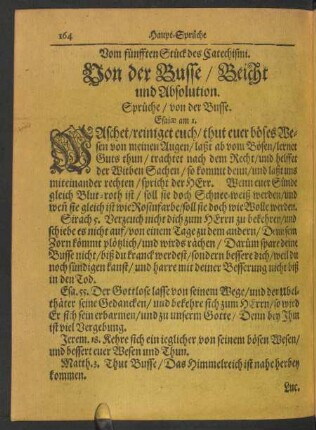 164 Haupt-Sprüche
Vom fünfften Stück des Catechismi.
Von der Busse / Beicht
und Absolution.
Sprüche / von der Busse.
Esaiæ am 1.
WAschet / reiniget euch / thut euer böses We-
sen von meinen Augen / laßt ab vom Bösen / lernet
Guts thun / trachtet nach dem Recht / und helffet
der Witben Sachen / so kommt denn / und laßt uns
miteinander rechten / spricht der HErr. Wenn euer Sünde
gleich Blut-roth ist / soll sie doch Schnee-weiß werden / und
wenn sie gleich ist wie Rosenfarbe soll sie doch wie Wolle werden.
Sirach 5. Verzeuch nicht dich zum HErrn zu bekehren / und
schiebe es nicht auf / von einem Tage zu dem andern / Denn sein
Zorn kömmt plötzlich / und wirds rächen / Darüm spare deine
Busse nicht / biß du kranck werdest / sondern bessere dich / weil du
noch sündigen kanst / und harre mit deiner Besserung nicht biß
in den Tod.
Esa. 55. Der Gottlose lasse von seinem Wege / und der Ubel-
thäter seine Gedancken / und bekehre sich zum HErrn / so wird
Er sich sein erbarmen / und zu unserm Gotte / Denn bey Ihm
ist viel Vergebung.
Jerem. 18. Kehre sich ein ieglicher von seinem bösen Wesen /
und bessert euer Wesen und Thun.
Matth. 3. Thut Busse / Das Himmelreich ist nahe herbey
kommen.
Luc.